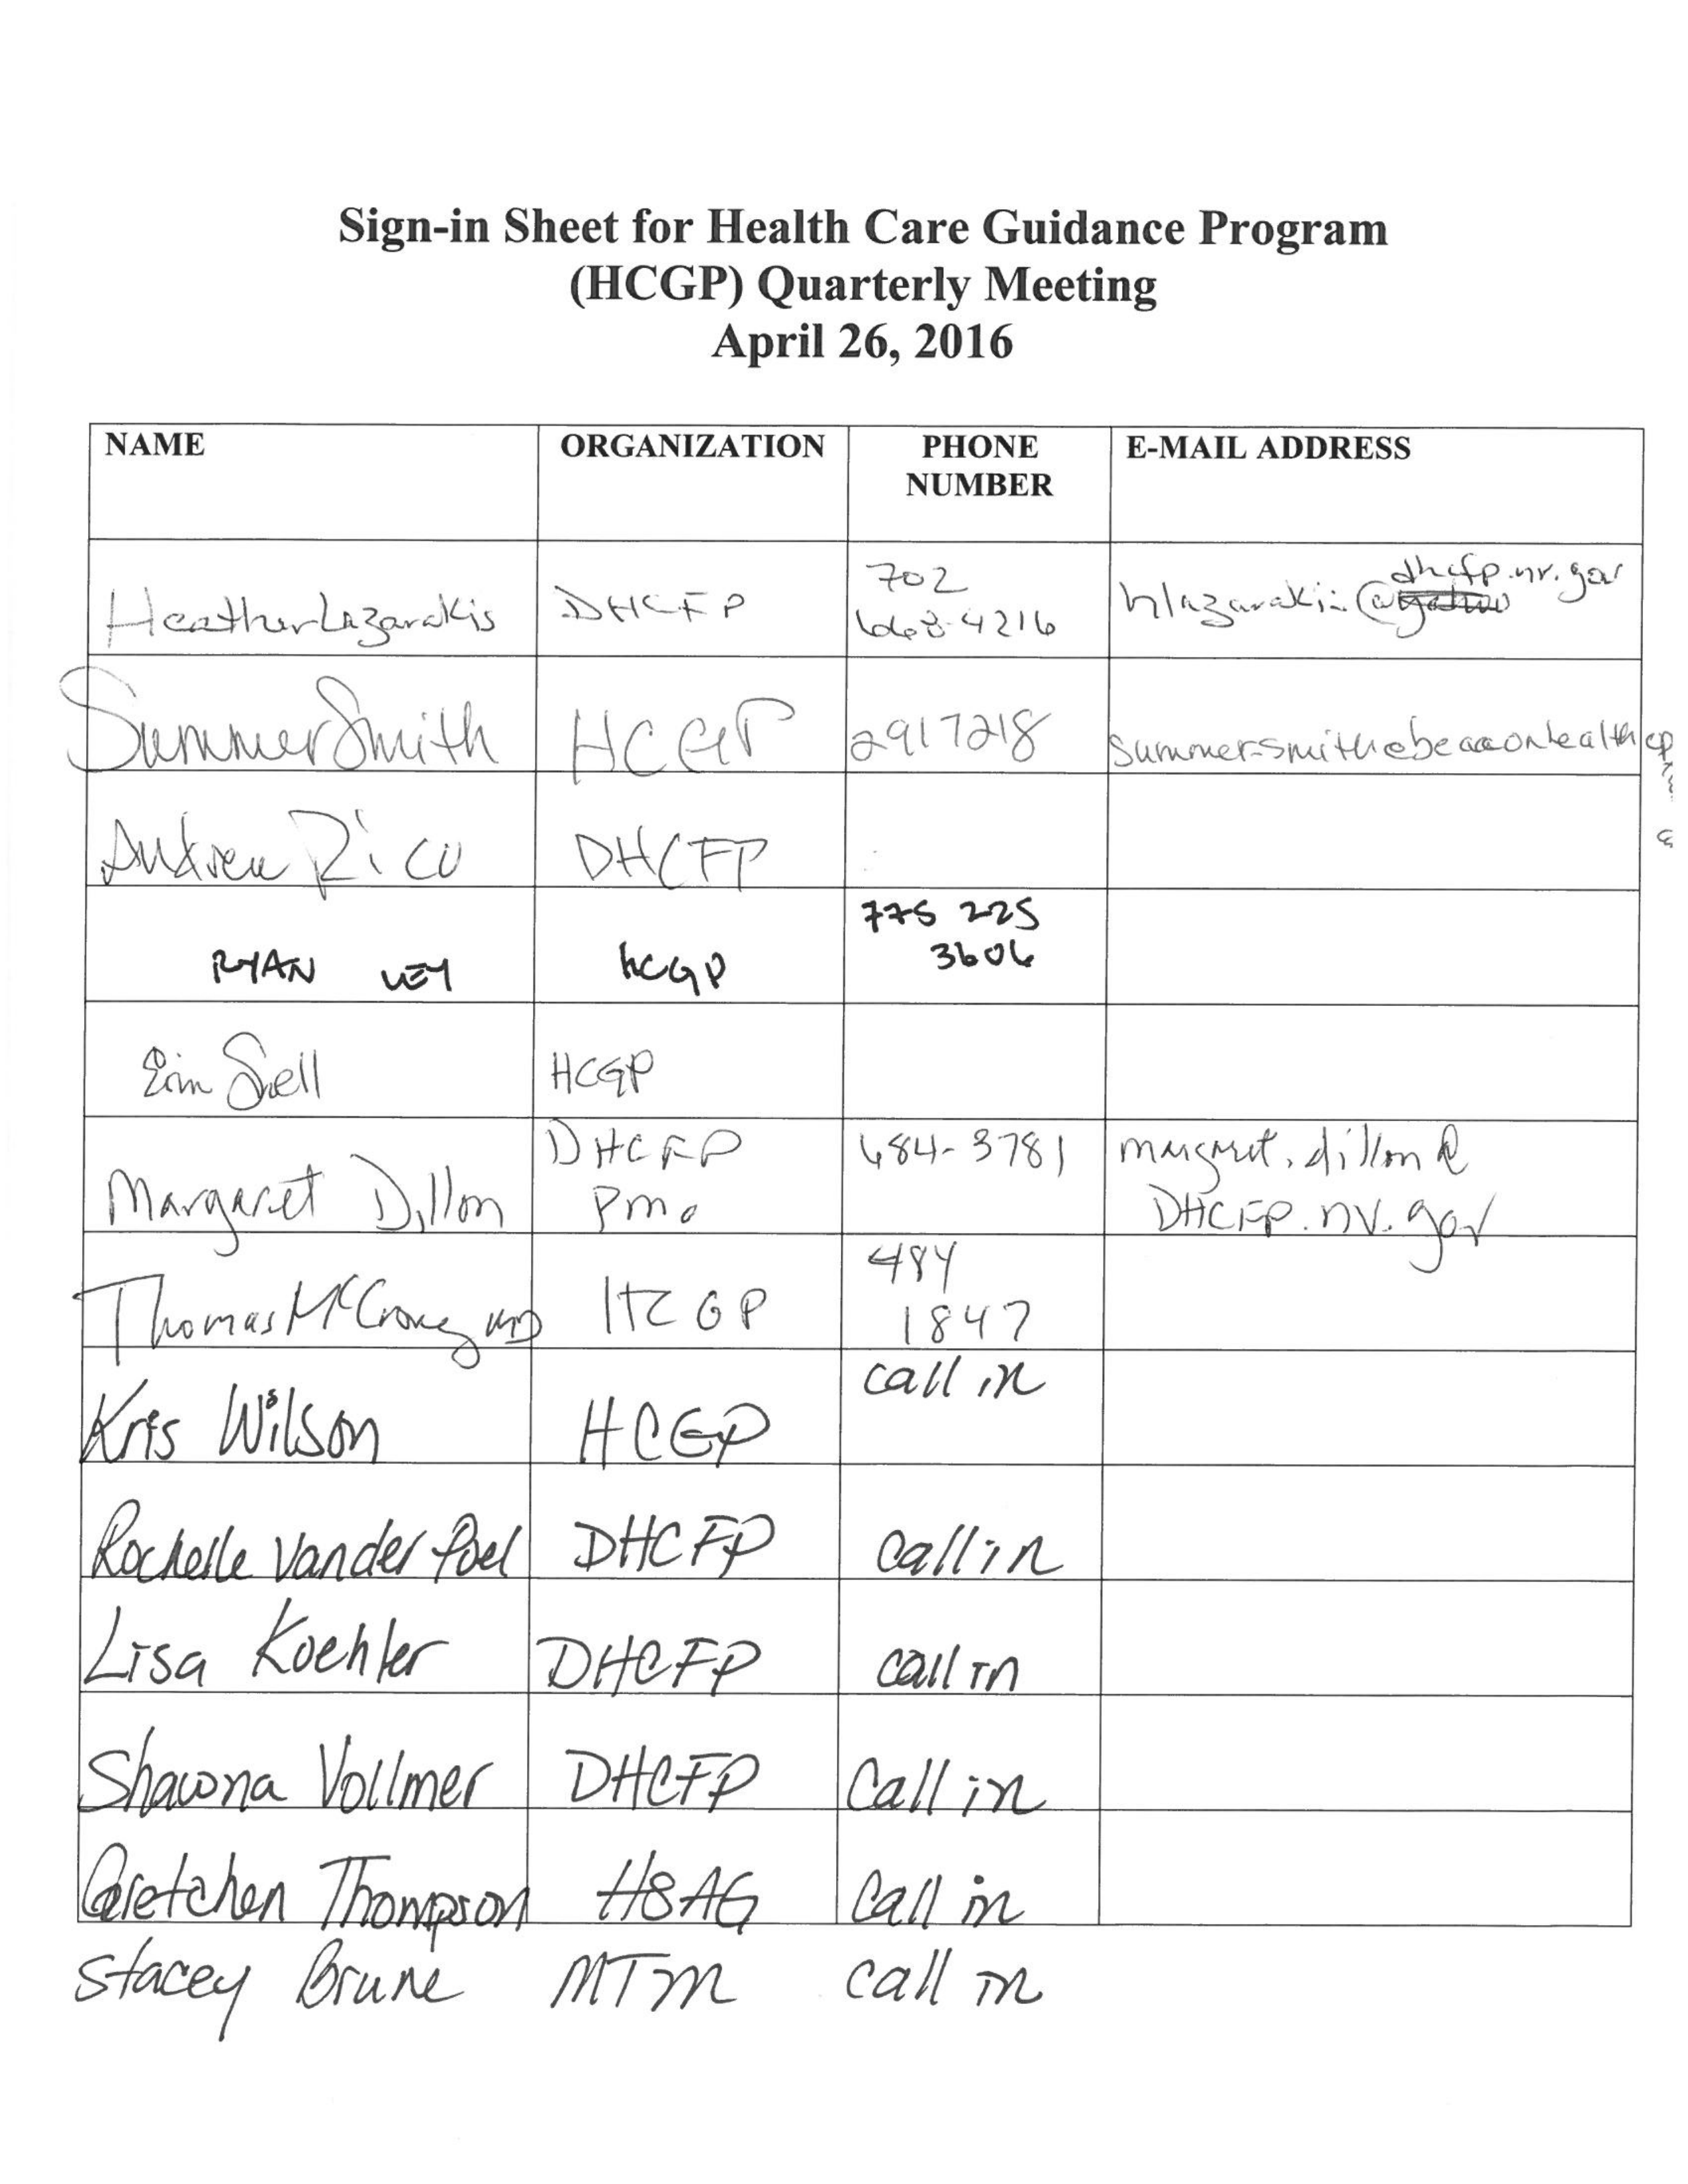 Sign-in Sheet for Health Care Guidance Program
(HCGP) Quarterly Meeting
April 26, 2016
NAME ORGANIZATION PHONE NUMBER E-MAIL ADDRESS
Heather Lazarakis DHCFP 702 668-4216 hlazarakis@dhcfp.nv.gov
Summer Smith HCGP 2917218
Andrea Rico DHCFP
RYAN LEY HCGP 775 225 3606
Erin Snell HCGP
Margaret Dillon DHCFP PMO 684-3781 margaret.dillon@
DHCFP.nv.gov
Thomas McCrorey MD HCGP 484 1847
Kris Wilson HCGP call in
Rochelle Vander Poel DHCFP call in
Lisa Koehler DHCFP call in
Shawna Vollmer DHCFP Call in
Gretchen Thompson HSAG Call in
Stacey Brune MTM call in